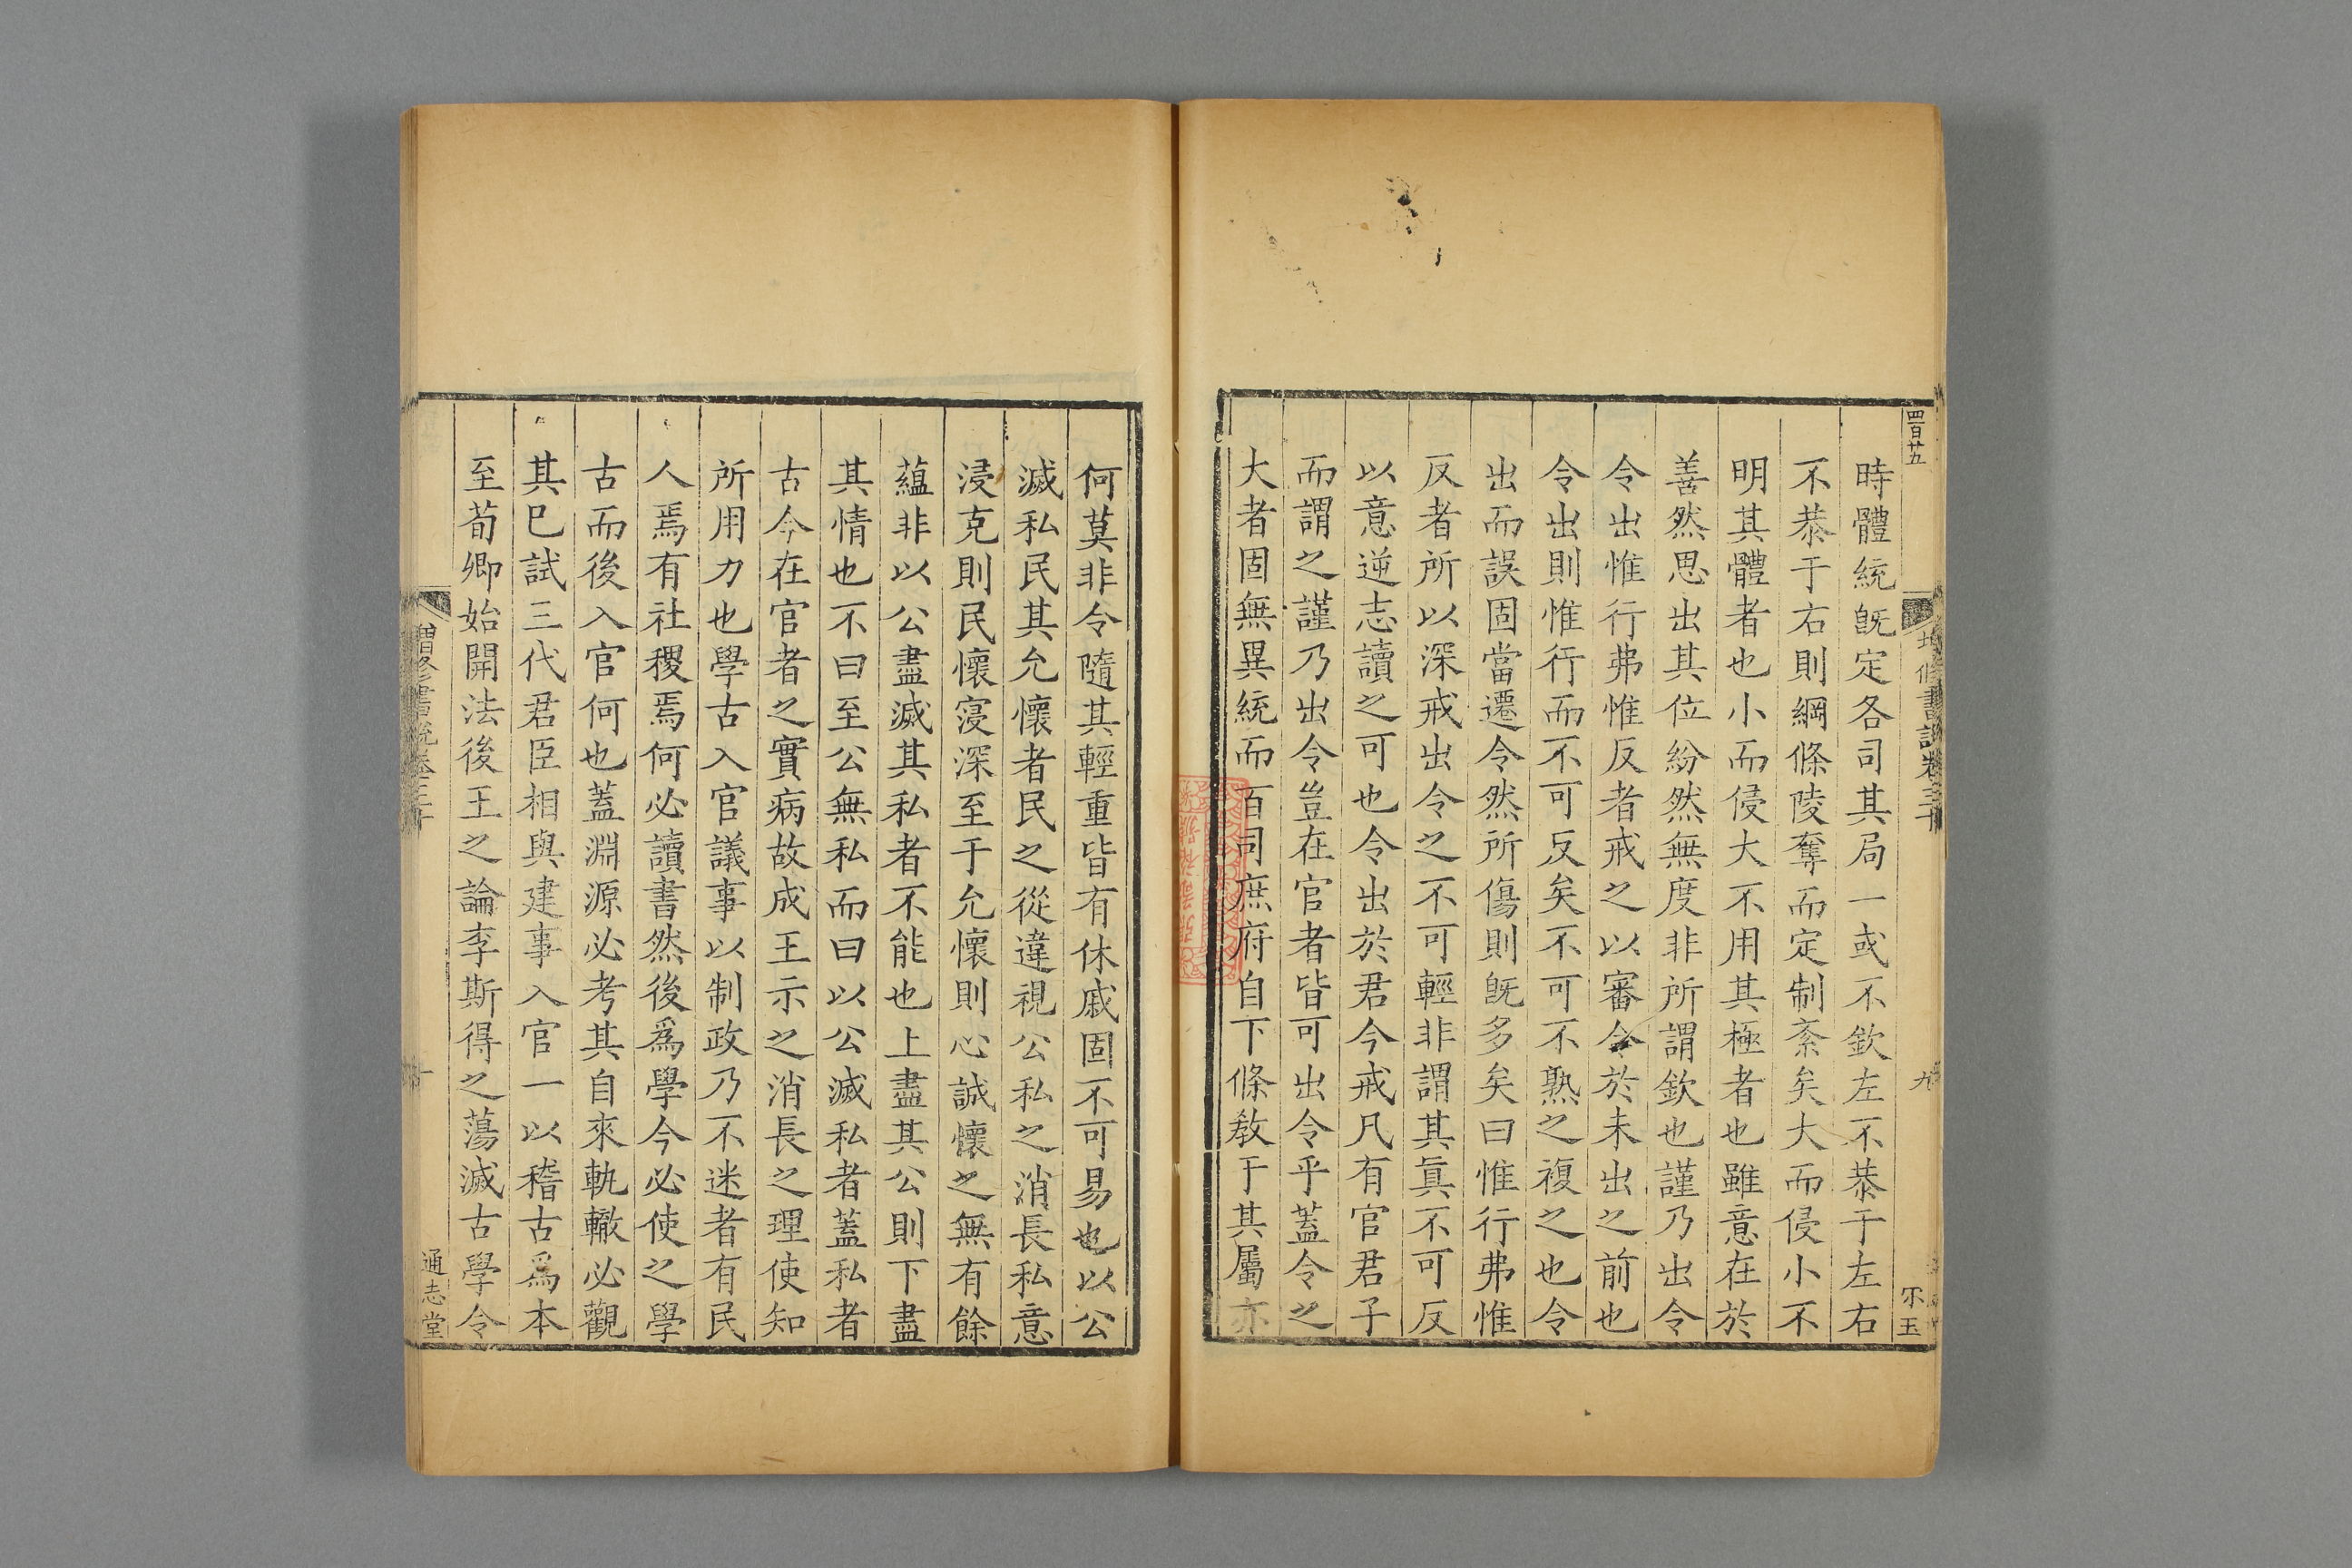 四百廿五
增修書說卷三十
九
時體統旣定各司其局一或不欽左不恭于左右
不恭于右則綱條陵奪而定制紊矣大而侵小不
明其體者也小而侵大不用其極者也雖意在於
善然思出其位紛然無度非所謂欽也謹乃出令
令出惟行弗惟反者戒之以審令於未出之前也
令出則惟行而不可反矣不可不熟之複之也令
出而誤固當遷令然所傷則旣多矣曰惟行弗惟
反者所以深戒出令之不可輕非謂其眞不可反
以意逆志讀之可也令出於君今戒凡有官君子
而謂之謹乃出令豈在官者皆可出令乎蓋令之
大者固無異統而百司庶府自下條敎于其屬亦
何莫非令隨其輕重皆有休戚固不可易也以公
滅私民其允懷者民之從違視公私之消長私意
浸克則民懷寖深至于允懷則心誠懷之無有餘
蘊非以公盡滅其私者不能也上盡其公則下盡
其情也不曰至公無私而曰以公滅私者蓋私者
古今在官者之實病故成王示之消長之理使知
所用力也學古入官議事以制政乃不迷者有民
人焉有社稷焉何必讀書然後爲學今必使之學
古而後入官何也蓋淵源必考其自來軌轍必觀
其已試三代君臣相與建事入官一以稽古爲本
至荀卿始開法後王之論李斯得之蕩滅古學令
增修書說卷三十
十
通志堂